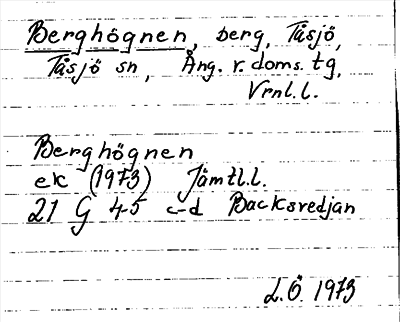 Berghögnen, berg, Tåsjö,
Tåsjö sn, Ång. v. doms. tg,
Vrnl. l.
Berghögnen
ek (1973) Jämtl.l.
21 G 4-5 c-d Backsredjan
L.Ö. 1973